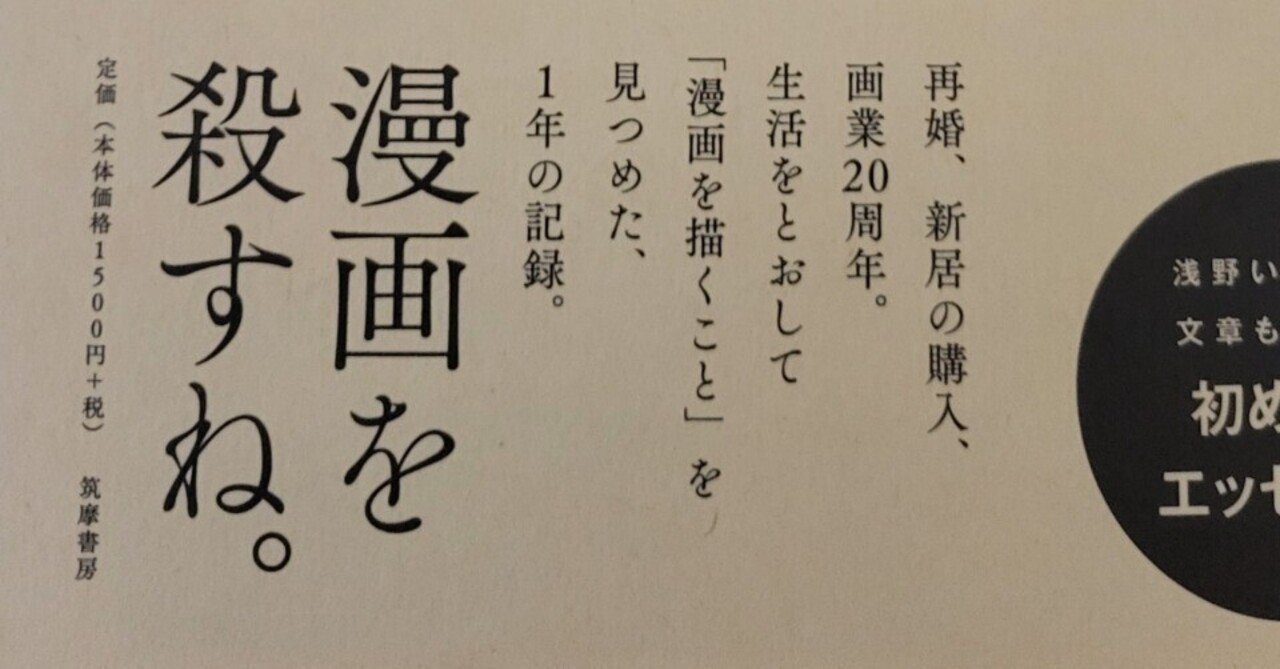 浅野い
文章も
初め
エッセ
再婚、新居の購入、
画業20周年。
生活をとおして
「漫画を描くこと」を
見つめた、
1年の記録。
漫画を
殺すね。
定価（本体価格1500円+税） 筑摩書房